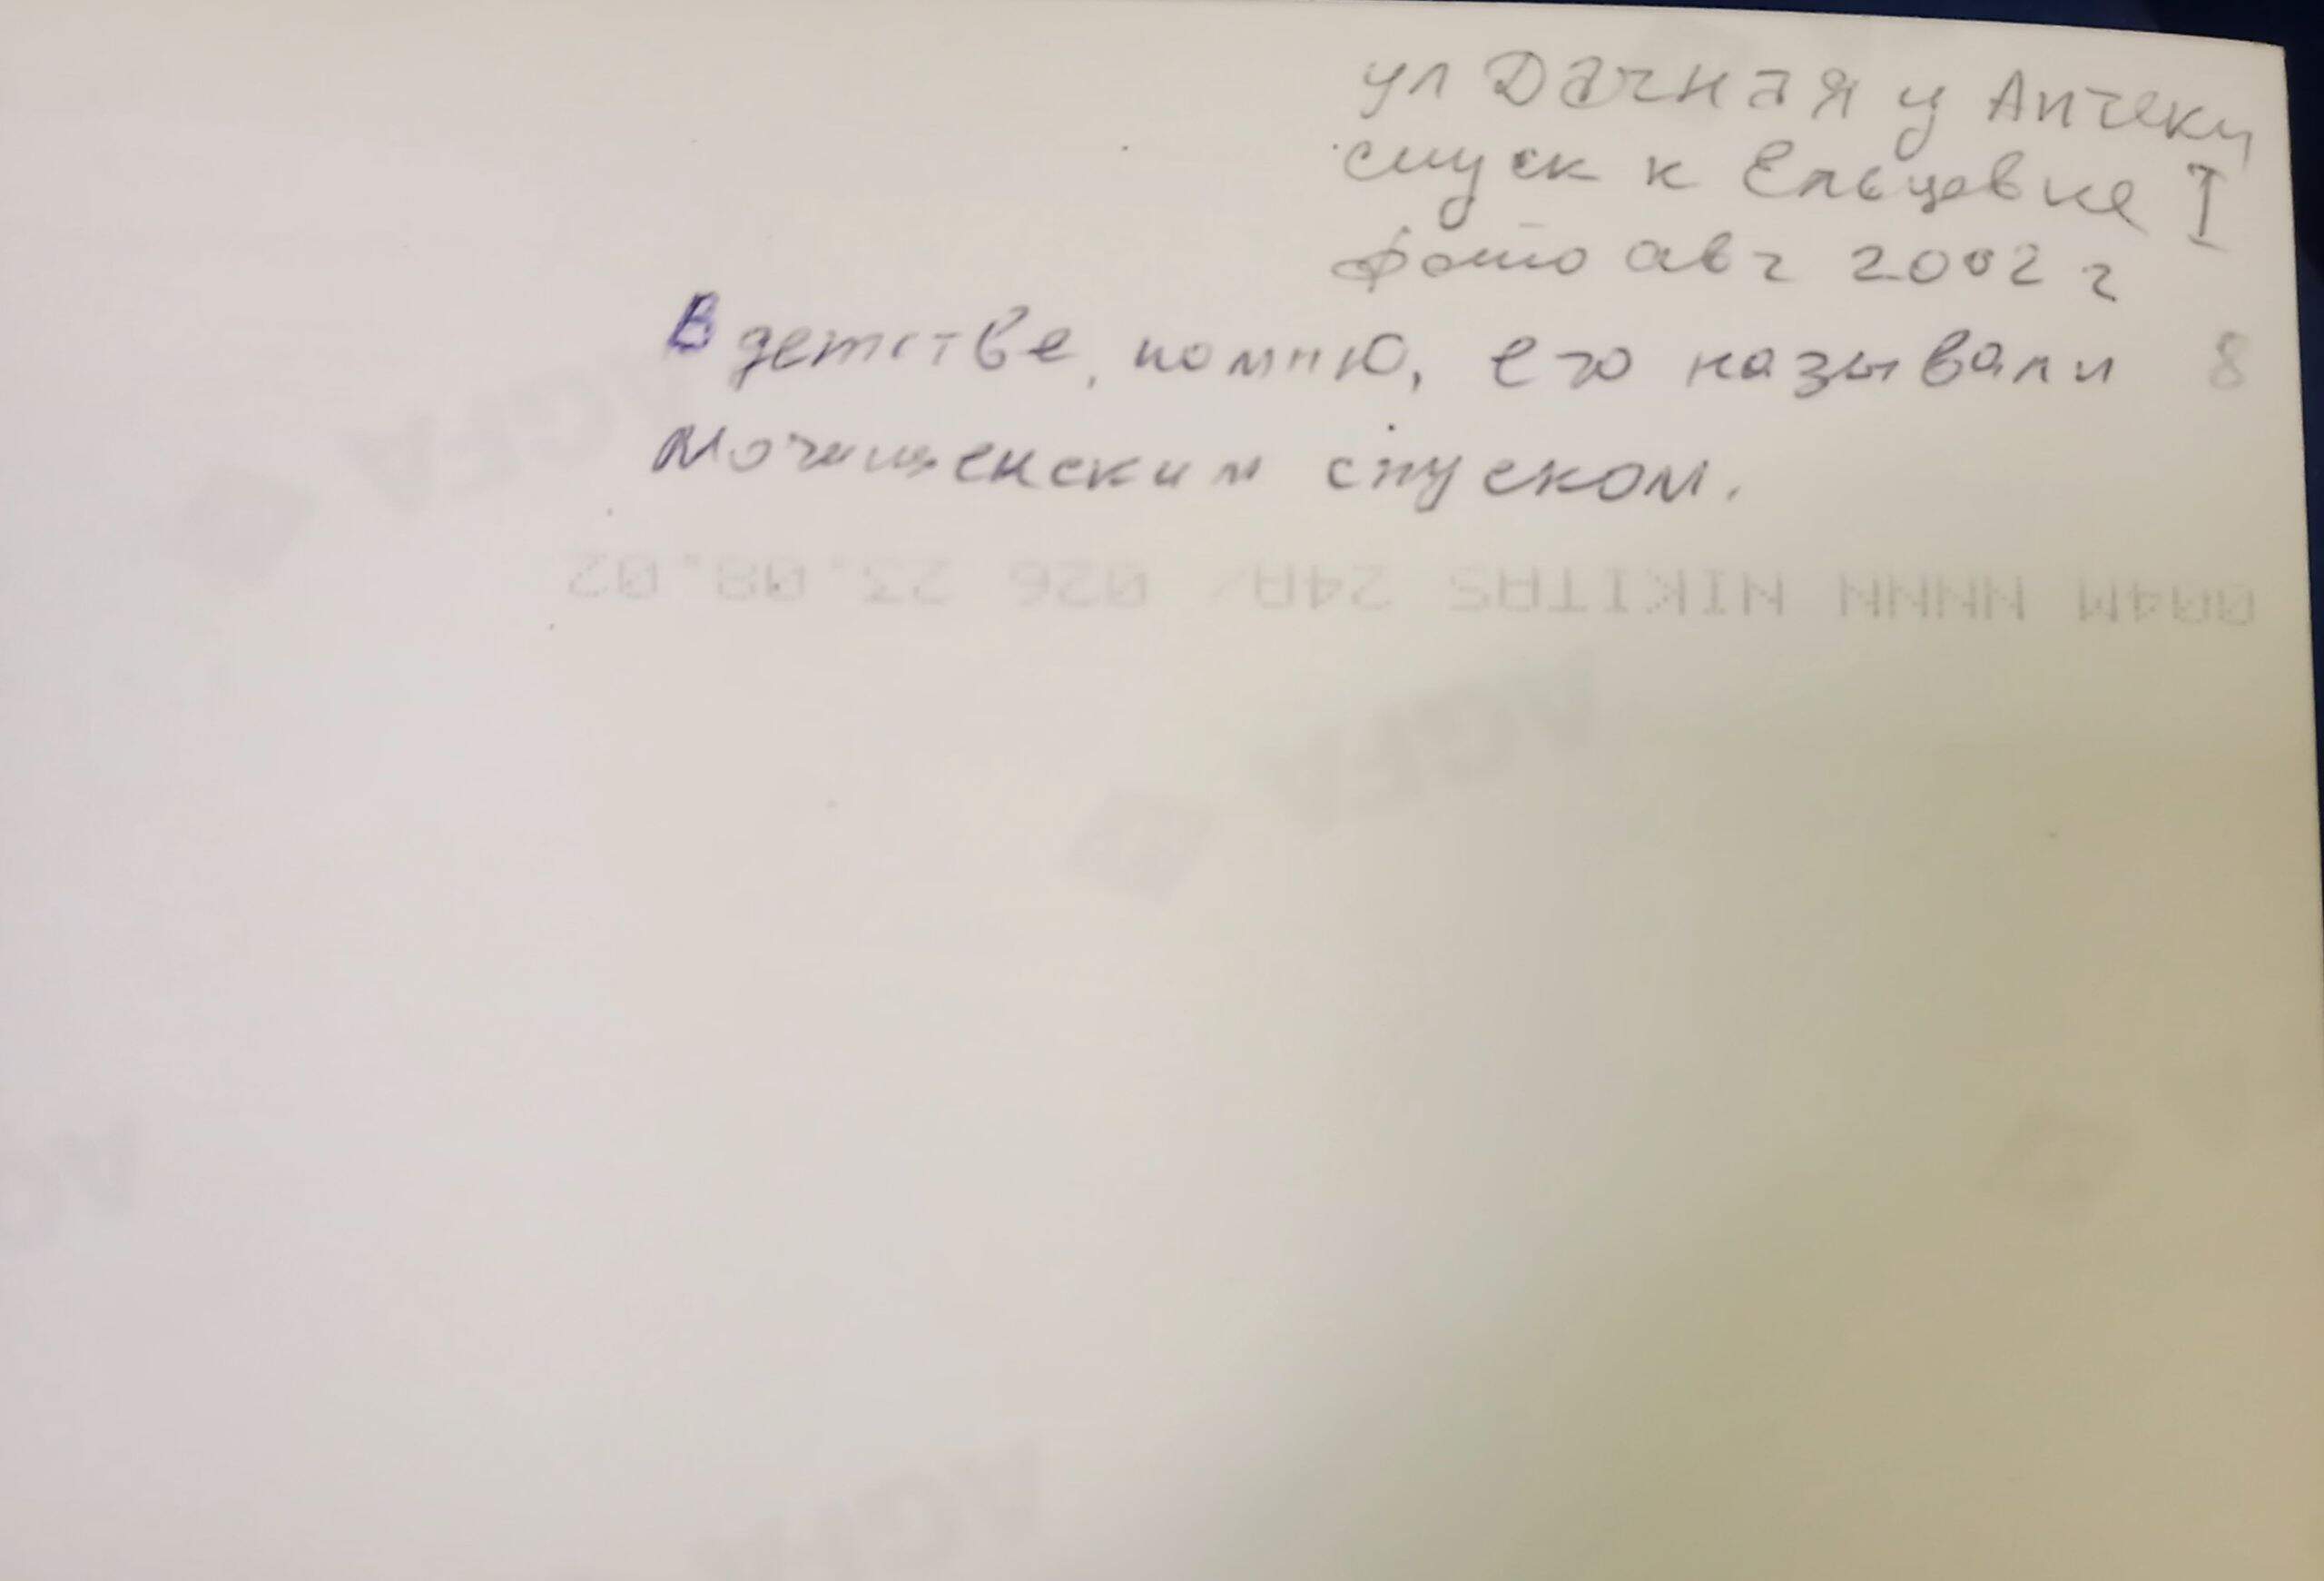 ул Дачная у Аптеки
спуск к Ельцовке I
фото авг 2002 г
В детстве, помню, его называли 8
Мочищенским спуском.
004M NNNN NIKITAS 24A 026 23.08.02
AGFA
AGFA
AGFA